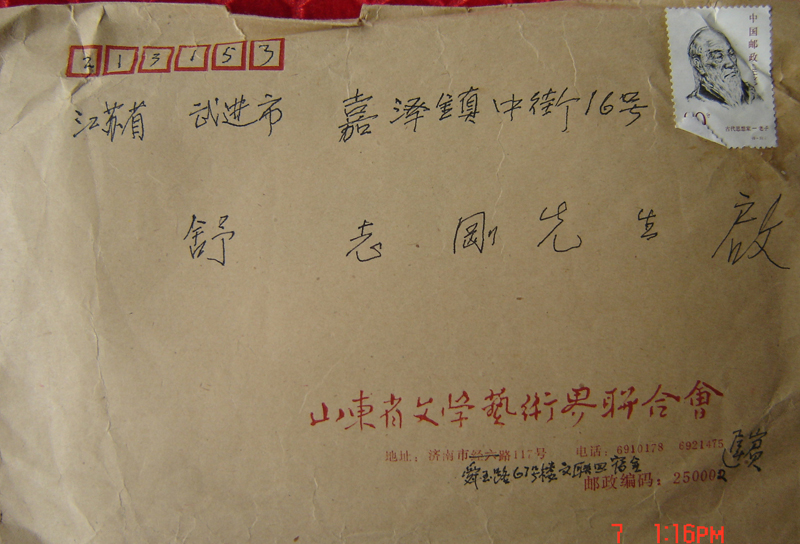 213153
中国邮政
江苏省 武进市 嘉泽镇中街16号
舒志刚先生 启
山東省文学藝術界聯合會
地址：济南市经六路117号 电话：6910178 6921475
舜玉路67号楼文联四宿舍
邮政编码：250002
7 1:16PM